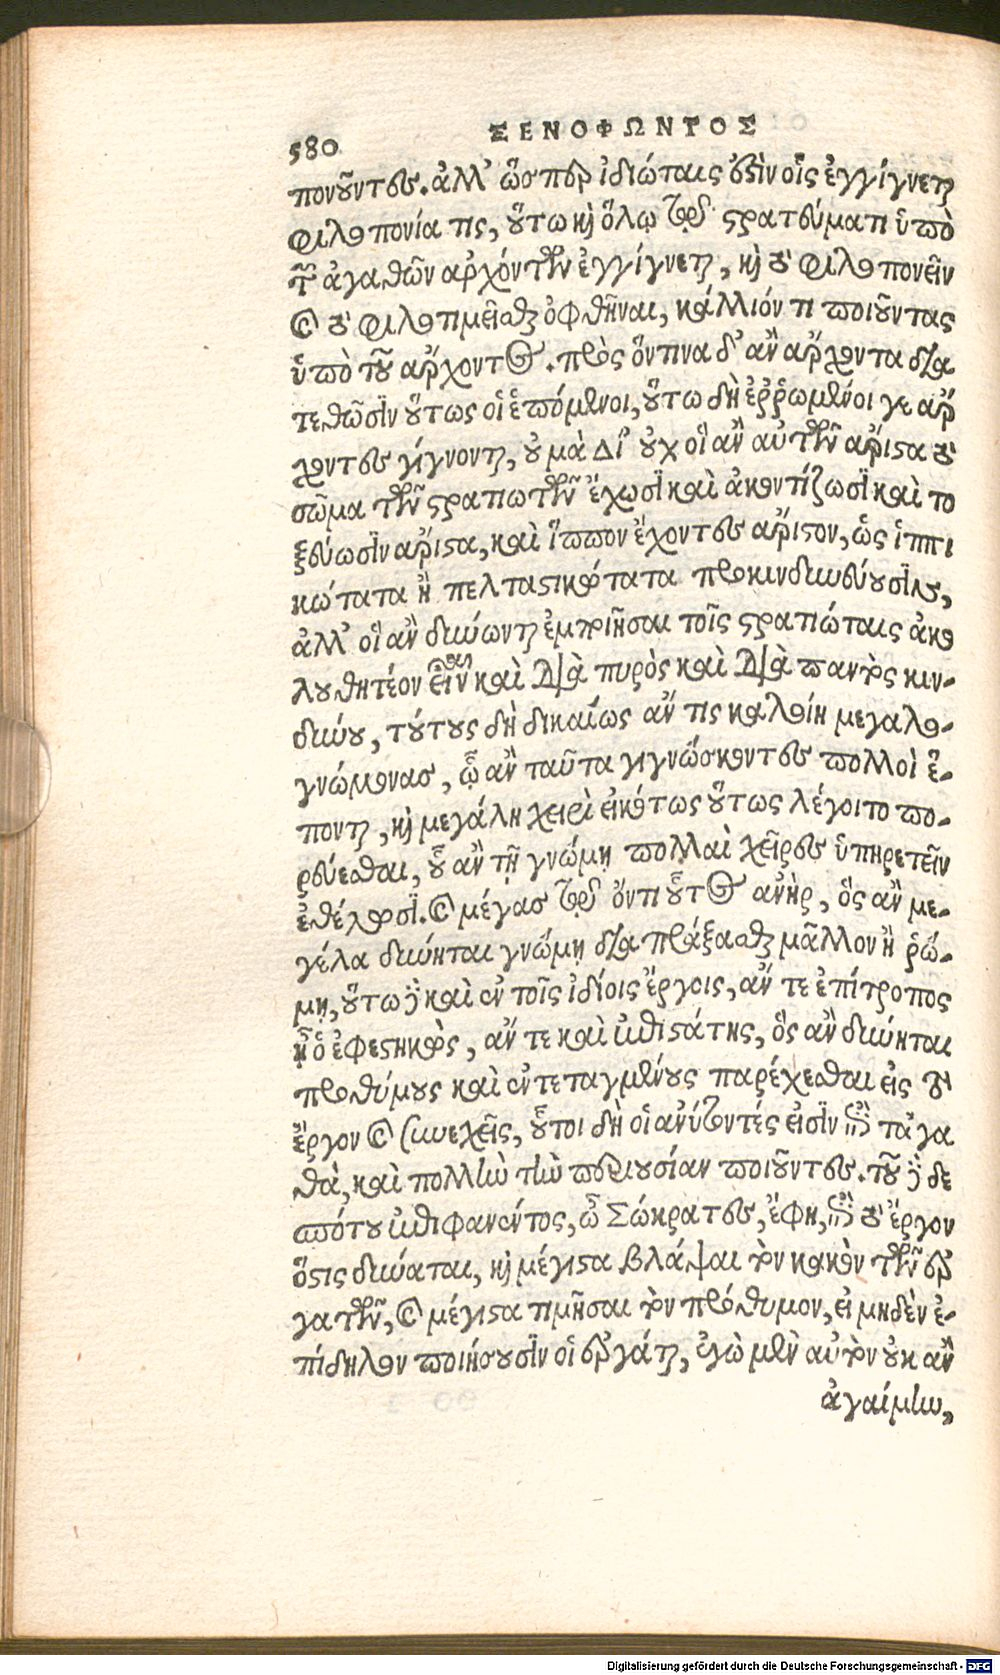 580 ΞΕΝΟΦΩΝΤΟΣ
πονοῦντες. ἀλλ' ὥσπερ ἰδιώταις ἔστιν οἷς ἐγγίγνεται
φιλοπονία τις, οὕτω καὶ ὅλῳ τῷ στρατεύματι ὑπὸ
τῶν ἀγαθῶν ἀρχόντων ἐγγίγνεται, καὶ τὸ φιλοπονεῖν
καὶ τὸ φιλοτιμεῖσθαι ὀφθῆναι, κάλλιόν τι ποιοῦντας
ὑπὸ τοῦ ἄρχοντος. πρὸς ὅντινα δ' ἂν ἄρχοντα δια
τεθῶσιν οὕτως οἱ ἑπόμενοι, οὕτω δὴ ἐῤῥωμένοι γε ἄρ
χοντες γίγνονται, οὐ μὰ Δί' οὐχ οἳ ἂν αὐτῶν ἄριστα τὸ
σῶμα τῶν στρατιωτῶν ἔχωσι καὶ ἀκοντίζωσι καὶ το
ξεύωσιν ἄριστα, καὶ ἵππον ἔχοντες ἄριστον, ὡς ἱππι
κώτατα ἢ πελταστικώτατα προκινδυνεύουσιν,
ἀλλ' οἳ ἂν δύνωνται ἐμποιῆσαι τοῖς στρατιώταις ἀκο
λουθητέον εἶναι καὶ διὰ πυρὸς καὶ διὰ παντὸς κιν-
δύνου, τούτους δὴ δικαίως ἄν τις καλοίη μεγαλο-
γνώμονας, ᾧ ἂν ταῦτα γιγνώσκοντες πολλοὶ ἕ-
πονται, καὶ μεγάλη χειρὶ εἰκότως οὕτως λέγοιτο πο-
ρεύεσθαι, οὗ ἂν τῇ γνώμῃ πολλαὶ χεῖρες ὑπηρετεῖν
ἐθέλωσι. καὶ μέγας τῷ ὄντι οὗτος ἀνὴρ, ὃς ἂν με-
γάλα δύνηται γνώμῃ διαπράξασθαι μᾶλλον ἢ ῥώ-
μῃ, οὕτω γὰρ καὶ ἐν τοῖς ἰδίοις ἔργοις, ἄν τε ἐπίτροπος
ᾖ ὁ ἐφεστηκὼς, ἄν τε καὶ ἐπιστάτης, ὃς ἂν δύνηται
προθύμους καὶ ἐντεταγμένους παρέχεσθαι εἰς τὸ
ἔργον καὶ συνεχεῖς, οὗτοι δὴ οἱ ἀνύτοντές εἰσιν ἐπὶ τἀγα
θὰ, καὶ πολλὴν τὴν περιουσίαν ποιοῦντες. τοῦ γὰρ δε
σπότου ἐπιφανέντος, ὦ Σώκρατες, ἔφη, ἐπὶ τὸ ἔργον
ὅστις δύναται, καὶ μέγιστα βλάψαι τὸν κακὸν τῶν ἐρ
γατῶν, καὶ μέγιστα τιμῆσαι τὸν πρόθυμον, εἰ μηδὲν ἐ-
πίδηλον ποιήσουσιν οἱ ἐργάται, ἐγὼ μὲν αὐτὸν οὐκ ἂν
ἀγαίμην,
Digitalisierung gefördert durch die Deutsche Forschungsgemeinschaft - DFG